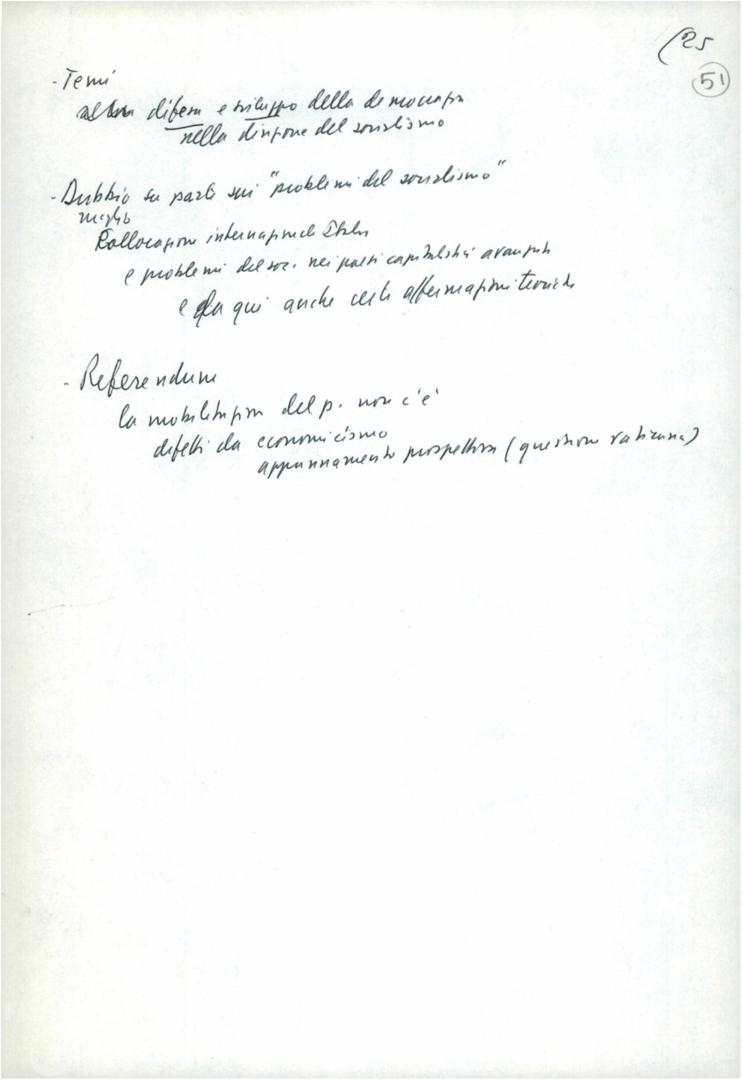 (25
51
- Temi
difesa e sviluppo della democrazia
nella direzione del socialismo
- Dubbio su parte sui "problemi del socialismo"
meglio
Collocazione internazionale Italia
e problemi del soc. nei paesi capitalistici avanzati
e da qui anche certe affermazioni teoriche
- Referendum
la mobilitazione del p. non c'è
difetti da economicismo
appannamento prospettiva (questione vaticana)